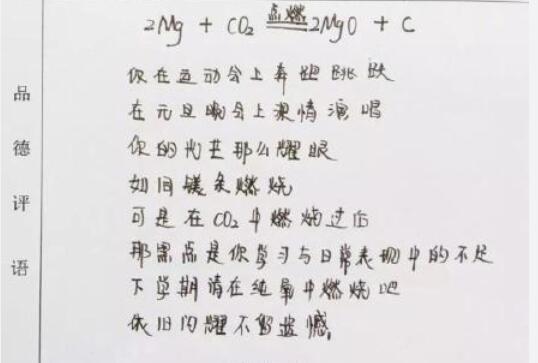 2Mg + CO₂ 点燃 2MgO + C
你在运动会上奔跑跳跃
在元旦晚会上激情演唱
你的光芒那么耀眼
如同镁条燃烧
可是在CO₂中燃烧过后
那黑点是你学习与日常表现中的不足
下学期请在纯氧中燃烧吧
依旧闪耀不留遗憾。
品德评语